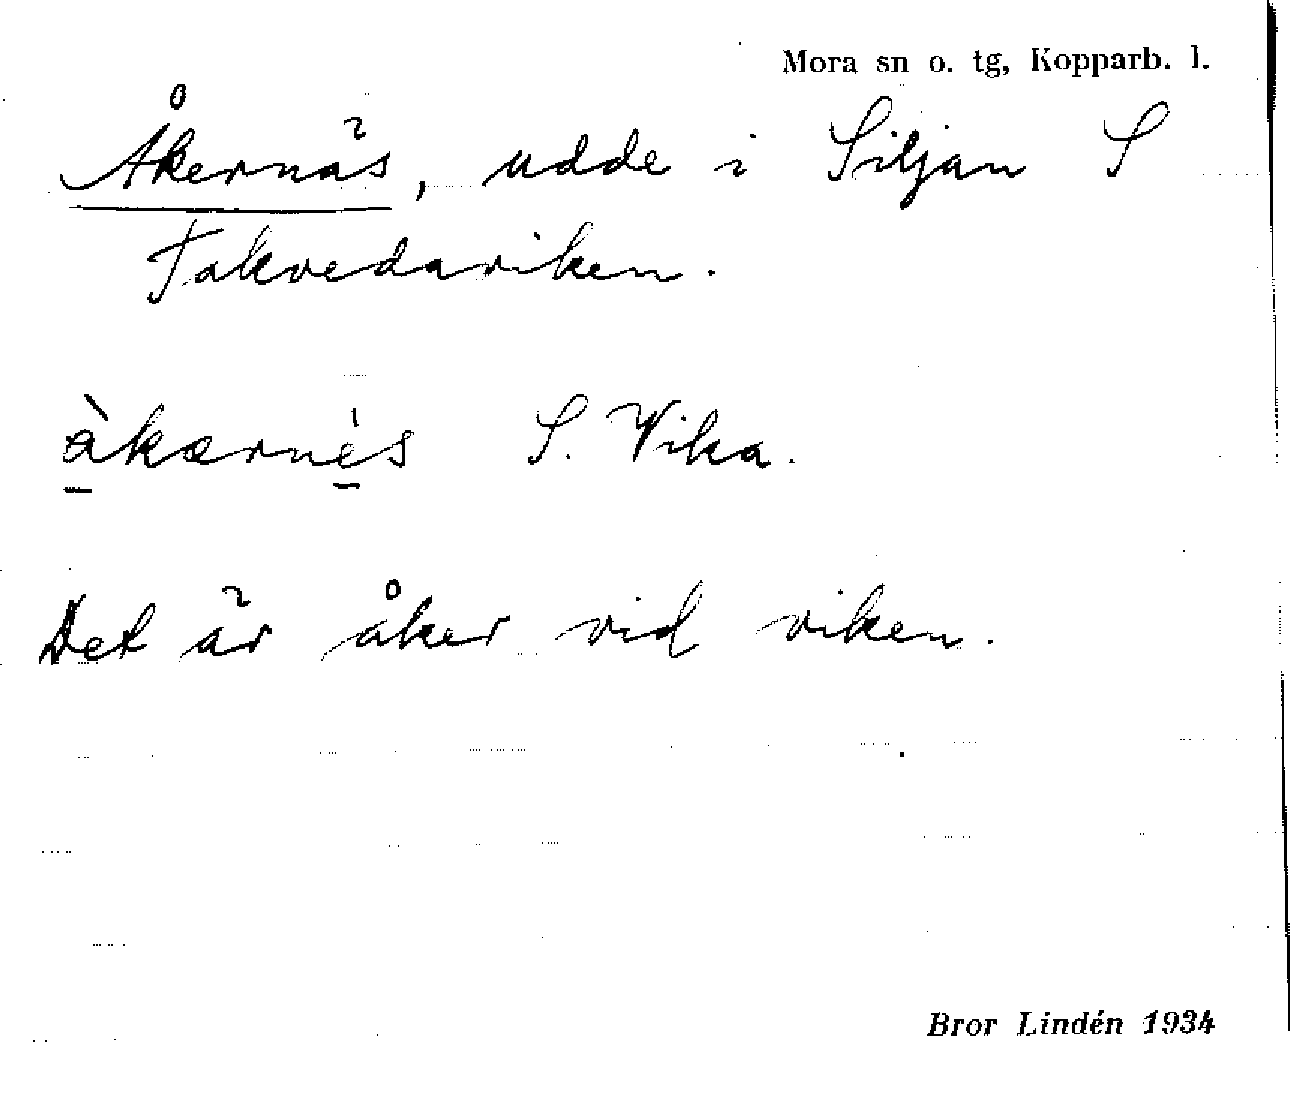 Mora sn o. tg, Kopparb. l.
Åkernäs, udde i Siljan S
Takvedaviken.
àkærnès S. Vika.
Det är åker vid viken.
Bror Lindén 1934